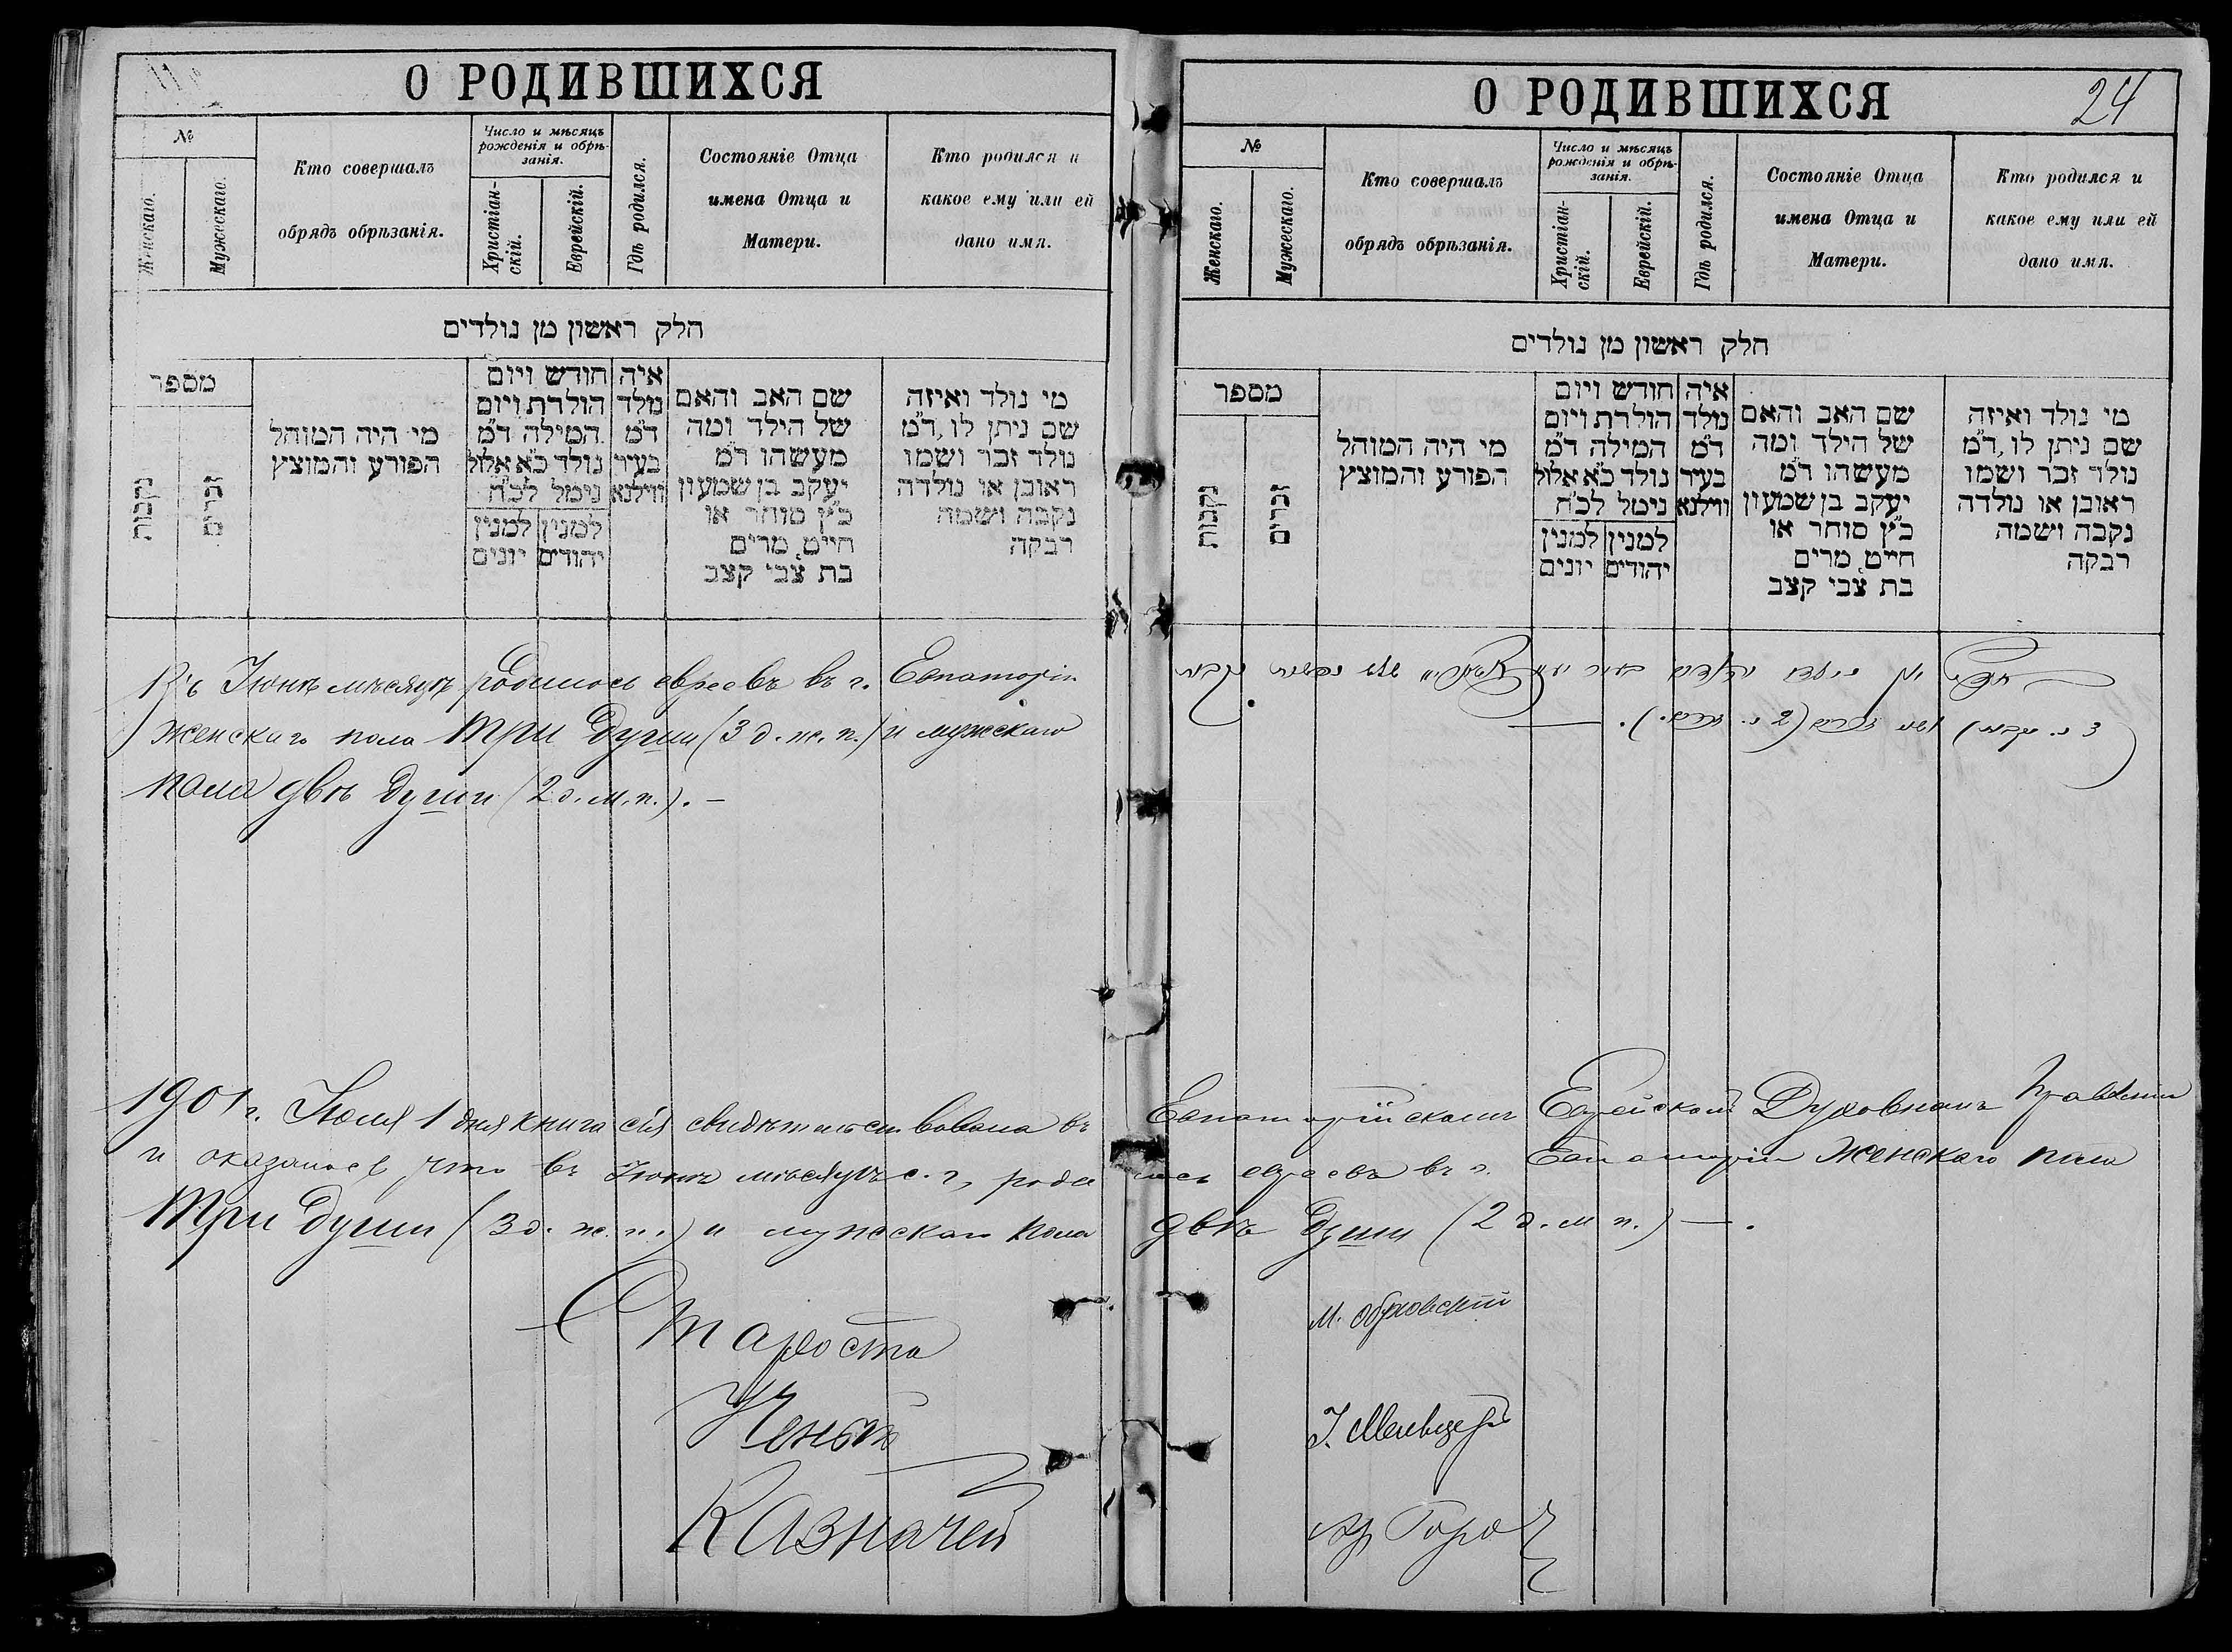 О РОДИВШИХСЯ
№
Женскаго.
Мужескаго.
Кто совершалъ
обрядъ обрѣзанія.
Число и мѣсяцъ
рожденія и обрѣ-
занія.
Христіан-
скій.
Еврейскій.
Гдѣ родился.
Состояніе Отца
имена Отца и
Матери.
Кто родился и
какое ему или ей
дано имя.
חלק ראשון מן נולדים
מספר
נקבות
זכרים
מי היה המוהל
הפורע והמוצץ
חודש ויום
הולדת ויום
המילה ד״מ
נולד כ״א אלול
נימל לכ״ח
למנין יונים
למנין יהודים
איה
נולד
ד״מ
בעיר
ווילנא
שם האב והאם
של הילד ומה
מעשהו ד״מ
יעקב בן שמעון
כ״ץ סוחר או
חייט, מרים
בת צבי קצב
מי נולד ואיזה
שם ניתן לו, ד״מ
נולד זכר ושמו
ראובן או נולדה
נקבה ושמה
רבקה
Въ Іюнѣ мѣсяцѣ родилось евреевъ въ г. Евпаторіи
женскаго пола три души (3 д. ж. п.) и мужскаго
пола двѣ души (2 д. м. п.). —
О РОДИВШИХСЯ
24
№
Женскаго.
Мужескаго.
Кто совершалъ
обрядъ обрѣзанія.
Число и мѣсяцъ
рожденія и обрѣ-
занія.
Христіан-
скій.
Еврейскій.
Гдѣ родился.
Состояніе Отца
имена Отца и
Матери.
Кто родился и
какое ему или ей
дано имя.
חלק ראשון מן נולדים
מספר
נקבות
זכרים
מי היה המוהל
הפורע והמוצץ
חודש ויום
הולדת ויום
המילה ד״מ
נולד כ״א אלול
נימל לכ״ח
למנין יונים
למנין יהודים
איה
נולד
ד״מ
בעיר
ווילנא
שם האב והאם
של הילד ומה
מעשהו ד״מ
יעקב בן שמעון
כ״ץ סוחר או
חייט, מרים
בת צבי קצב
מי נולד ואיזה
שם ניתן לו, ד״מ
נולד זכר ושמו
ראובן או נולדה
נקבה ושמה
רבקה
1901 г. Іюля 1 дня книга сія свидѣтельствована въ Евпаторійскомъ Еврейскомъ Духовномъ Правленіи
и оказалось, что въ Іюнѣ мѣсяцѣ с. г, родилось евреевъ въ г. Евпаторіи женскаго пола
три души (3 д. ж. п.) и мужскаго пола двѣ души (2 д. м. п.) —.
Староста
Ученый
Казначей